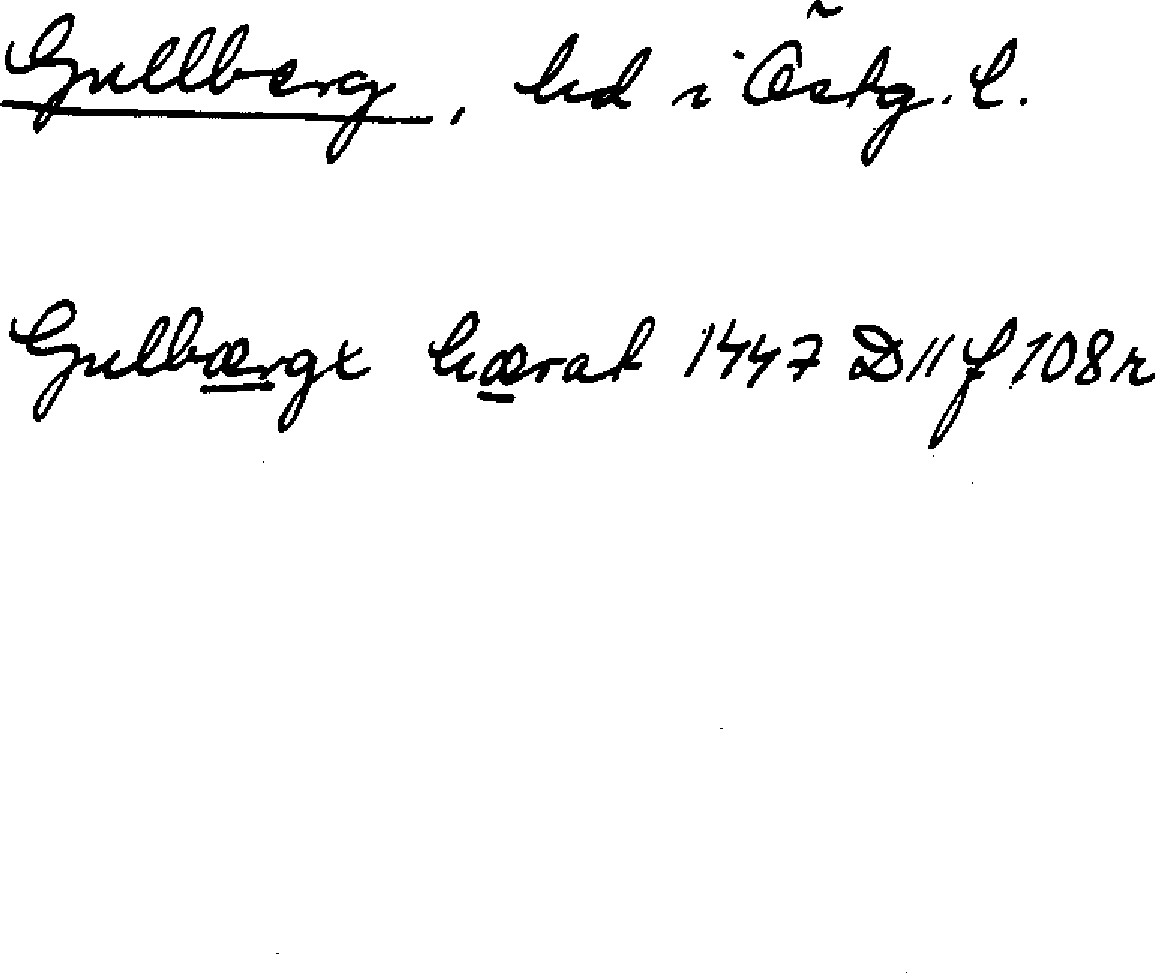 Gullberg, hd i Östg. L.
Gulbærgx hærat 1447 D11 f 108r